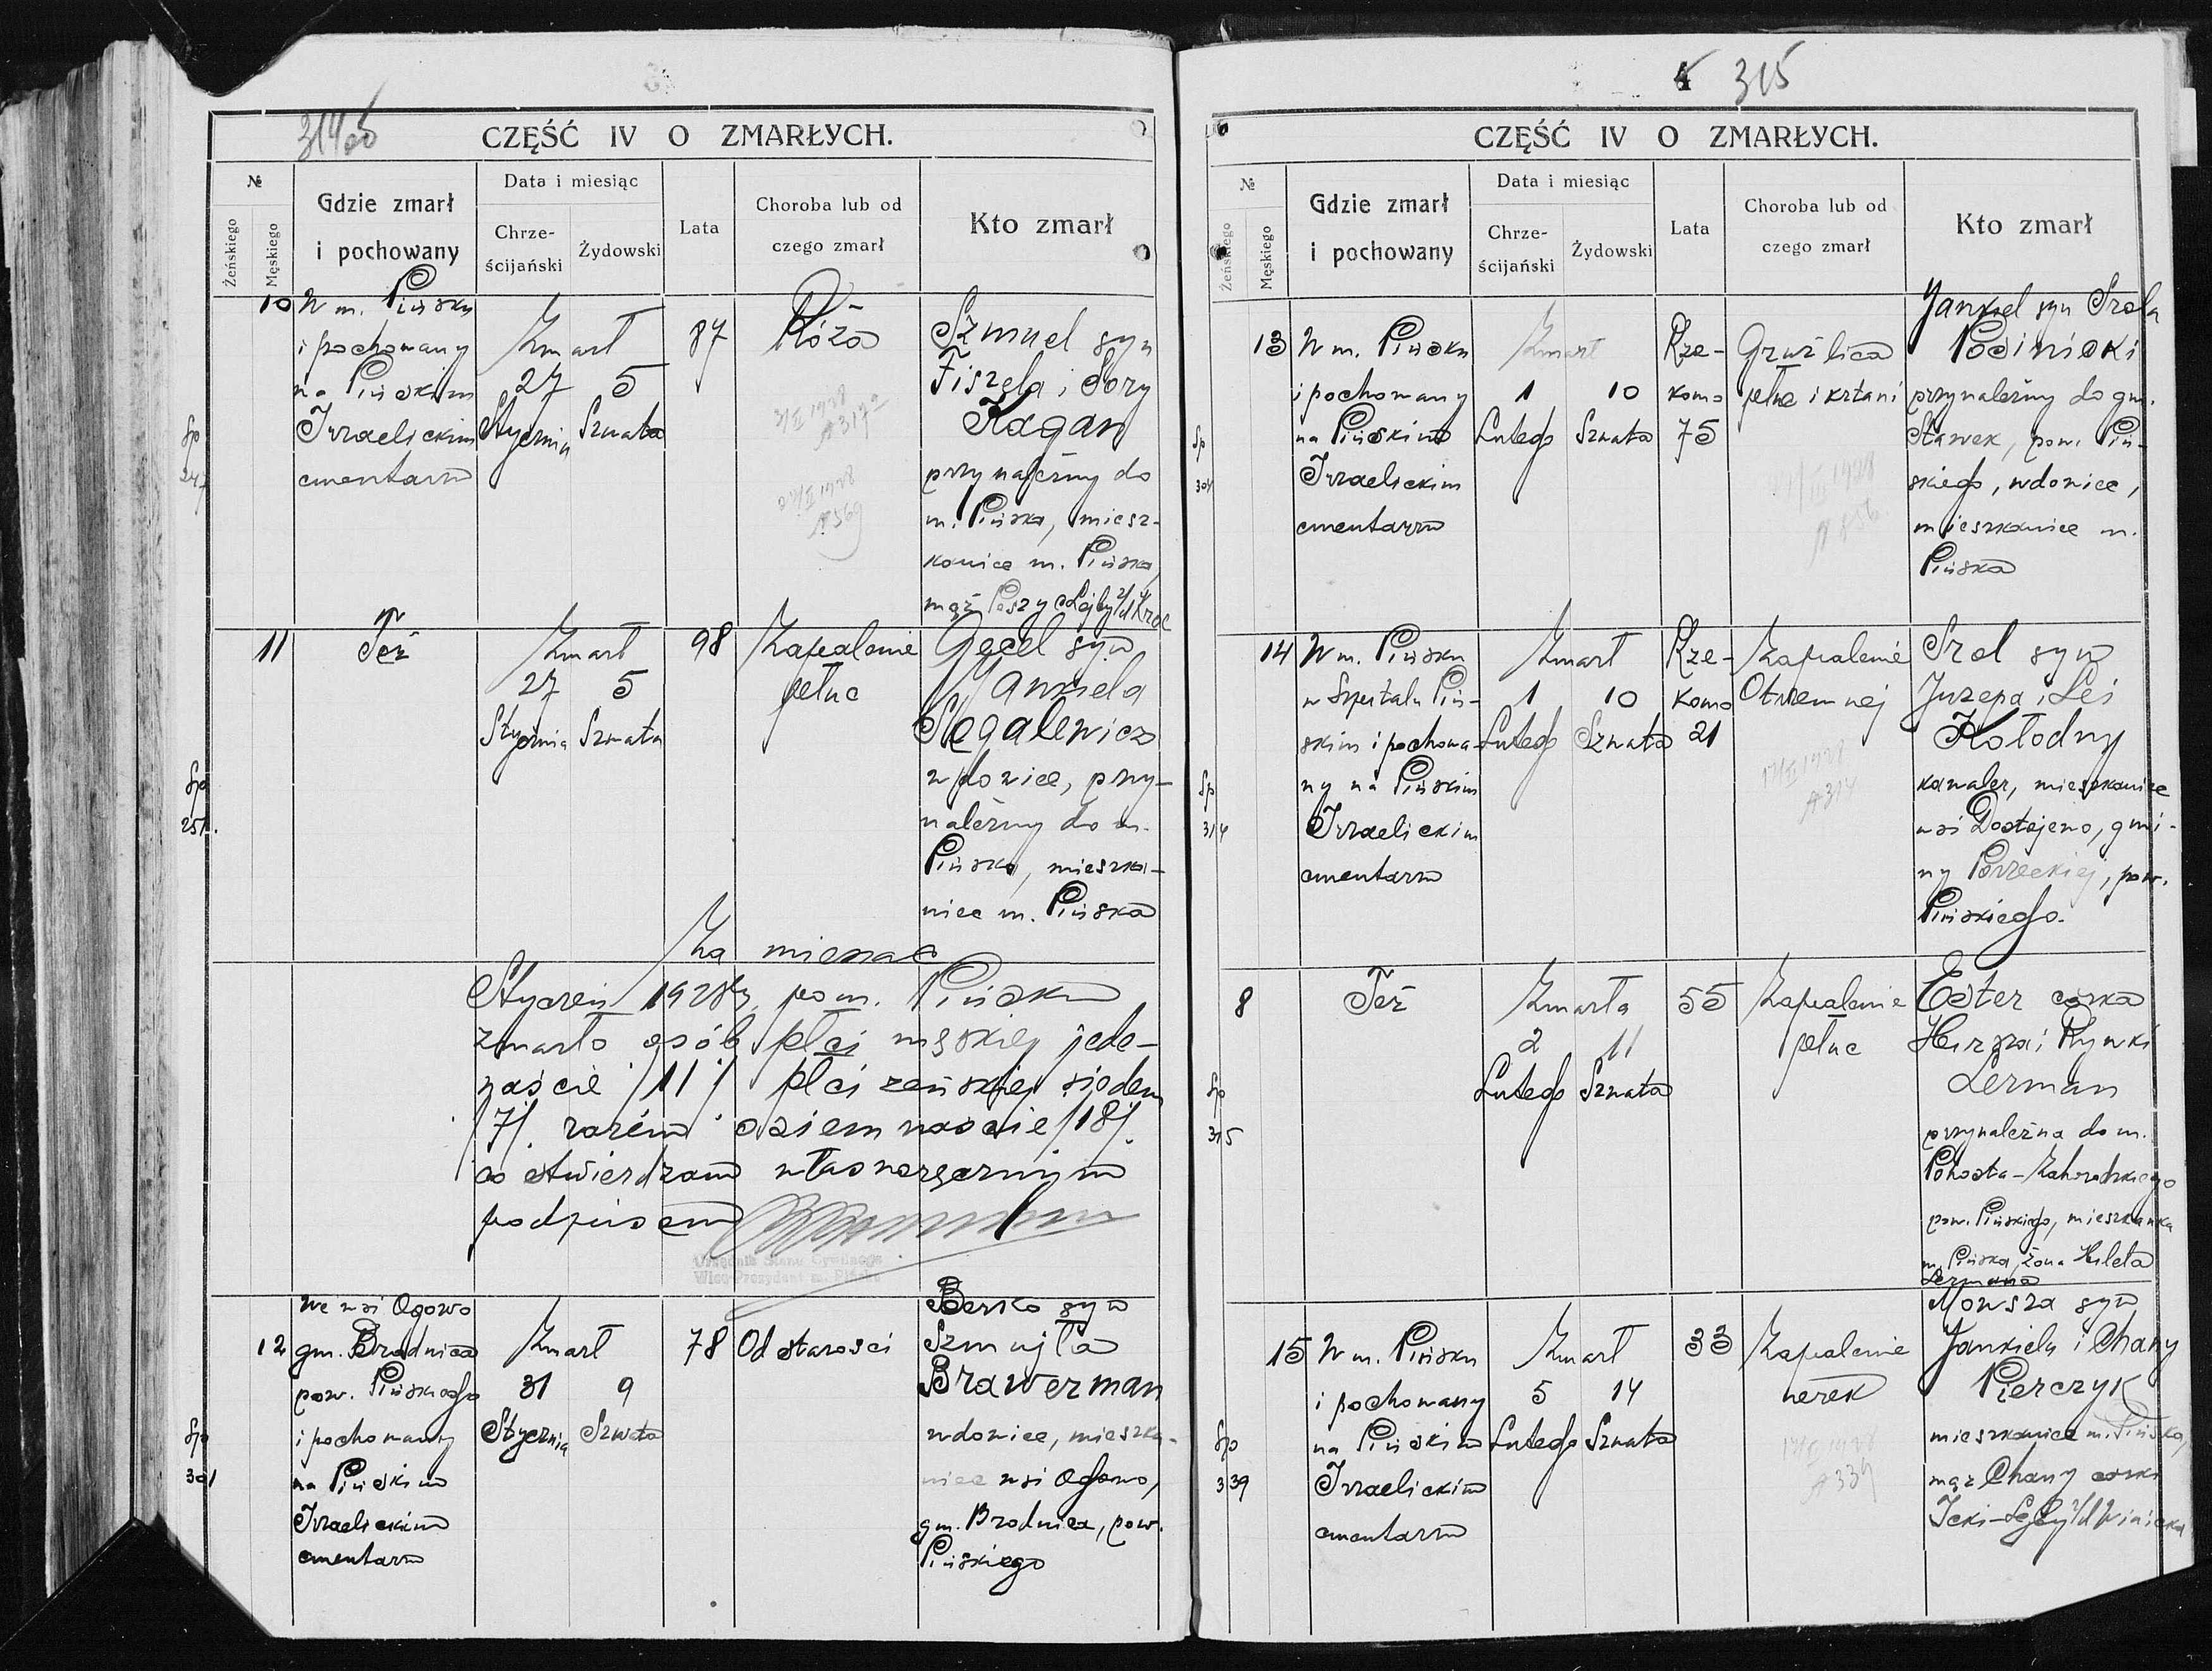 31460
CZĘŚĆ IV O ZMARŁYCH.
№
Żeńskiego
Męskiego
Gdzie zmarł
i pochowany
Data i miesiąc
Chrze-
ścijański
Żydowski
Lata
Choroba lub od
czego zmarł
Kto zmarł
Sp
247
10
W m. Pińsku
i pochowany
na Pińskim
Izraelickim
cmentarzu
Zmarł
27 5
Stycznia Szwata
87
Róża
Szmuel syn
Fiszela i Sory
Kagan
przynależny do
m. Pińska, miesz-
kaniec m. Pińska,
mąż Peszy c Lejby
Sp
251.
11
Też
Zmarł
27 5
Stycznia Szwata
98
Zapalenie
płuc
Gecel syn
Jankiela
Segalewicz
wdowiec, przy-
należny do m.
Pińska, mieszka-
niec m. Pińska
Za miesiąc
Styczeń 1928 r. pow. Pińsku
zmarło osób płci męskiej jede-
naście /11/ płci żeńskiej siedem
/7/. razem osiemnaście /18/.
co stwierdzam własnoręcznym
podpisem
Urzędnik Stanu Cywilnego
Wice-Prezydent m. Pińska
Sp
301
12
We wsi Ogowo
gm. Brodnica
pow. Pińskiego
i pochowany
na Pińskim
Izraelickim
cmentarzu
Zmarł
31 9
Stycznia Szwata
78
Od starości
Berko syn
Szmujła
Brawerman
wdowiec, mieszka-
niec wsi Ogowo,
gm. Brodnica, pow.
Pińskiego
4 315
CZĘŚĆ IV O ZMARŁYCH.
№
Żeńskiego
Męskiego
Gdzie zmarł
i pochowany
Data i miesiąc
Chrze-
ścijański
Żydowski
Lata
Choroba lub od
czego zmarł
Kto zmarł
Sp
304
13
W m. Pińsku
i pochowany
na Pińskim
Izraelickim
cmentarzu
Zmarł
1 10
Lutego Szwata
Rze-
komo
75
Gruźlica
płuc i krtani
Jankiel syn Srola
Posinicki
przynależny do gm.
Stawek, pow. Piń-
skiego, wdowiec,
mieszkaniec m.
Pińska
Sp
314
14
W m. Pińsku
w Szpitalu Piń-
skim i pochowa-
ny na Pińskim
Izraelickim
cmentarzu
Zmarł
1 10
Lutego Szwata
Rze-
komo
21
Zapalenie
Otrzewnej
Srol syn
Juzepa i Lei
Kołodny
kawaler, mieszkaniec
wsi Dostojewo, gmi-
ny Porzeckiej, pow.
Pińskiego.
Sp
315
8
Też
Zmarła
2 11
Lutego Szwata
55
Zapalenie
płuc
Ester córka
Herszka i Rywki
Lerman
przynależna do m.
Pohosta-Zahorodzkiego
pow. Pińskiego, mieszkanka
m. Pińska, żona Hileła
Lermana
Sp
339
15
W m. Pińsku
i pochowany
na Pińskim
Izraelickim
cmentarzu
Zmarł
5 14
Lutego Szwata
33
Zapalenie
nerek
Mowsza syn
Jankiela i Chany
Pierczyk
mieszkaniec m. Pińska,
mąż Chany córki
Icki-Lejby